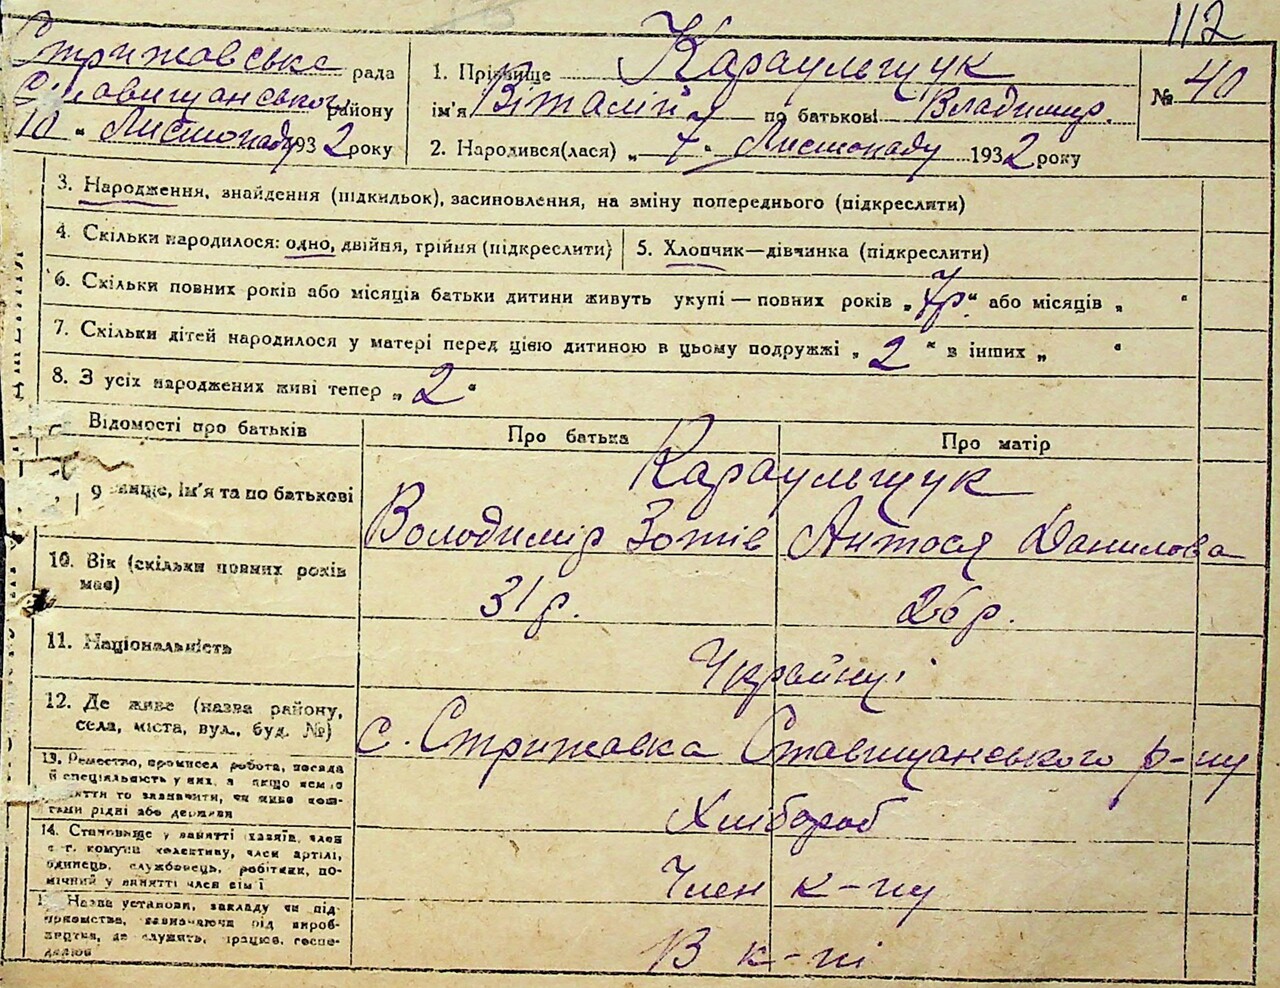 112
Стрижавська рада
Ставищанського району
10 " Листопаду 1932 року
1. Прізвище Караульщук
ім'я Віталій по батькові Владимир.
2. Народився(лася) „ 7 " Листопаду 1932 року
№ 40
3. Народження, знайдення (підкидьок), засиновлення, на зміну попереднього (підкреслити)
4. Скільки народилося: одно, двійня, трійня (підкреслити)
5. Хлопчик—дівчинка (підкреслити)
6. Скільки повних років або місяців батьки дитини живуть укупі — повних років „ 7р. " або місяців „ "
7. Скільки дітей народилося у матері перед цією дитиною в цьому подружжі „ 2 " в інших „ "
8. З усіх народжених живі тепер „ 2 "
Відомості про батьків
Про батька
Про матір
9 вище, ім'я та по батькові
Караульщук
Володимир Зотів
Антося Данилова
10. Вік (скільки повних років
має)
31 р.
26 р.
11. Національність
Українці
12. Де живе (назва району,
села, міста, вул., буд. №)
с. Стрижавка Ставищанського р-ну
13. Ремество, промисел робота, посада
й спеціальність у них, а якщо немає
яття то зазначити, чи живе кош-
тами рідні або держави
Хлібороб
14. Становище у занятті хазяїн, член
с.-г. комуни колективу, член артілі,
одинець, службовець, робітник, по-
мічний у занятті член сім'ї
Член к-пу
Назва установи, закладу чи під-
приємства, зазначаючи рід вироб-
ництва, де служить, працює, госпо-
дарює
В к-пі